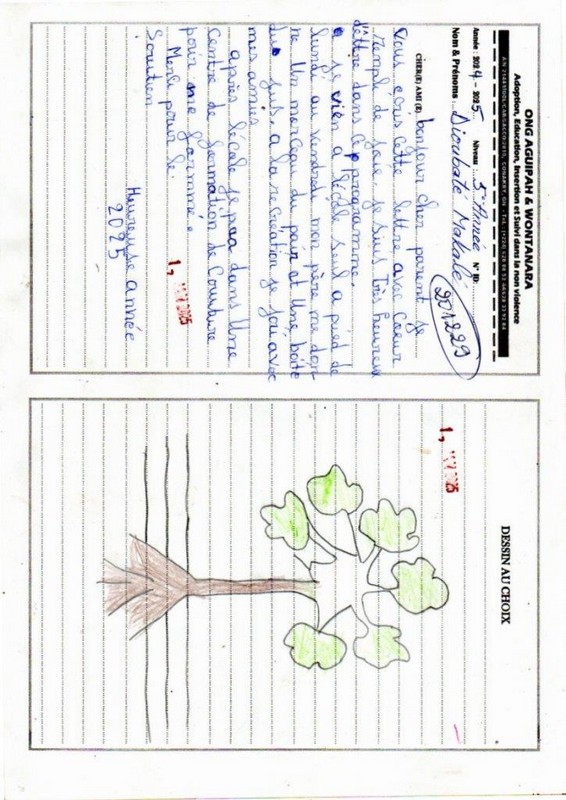 ONG AGUIPAH & WONTANARA
Adoption, Education, Insertion et Suivi dans la non violence
Année : 2024 - 2025 Niveau : 5e Année N° ID:
201229
Nom & Prénoms : Dioubaté Makalé
CHER(E) AMI (E) bonjour cher parent je
vous écris cette lettre avec Coeur
rempli de joie. je suis Très heureux
d'être dans ce programme.
je vien a l'école seul a pied de
lundi au vendredi mon père me don-
ne Un morceau du pain et Une boîte
du jus, a la recreation je joué avec
mes amies.
après l'école je paa dans Une
Centre de formation de Couture
pour me formée.
Merci pour le
Soutien
Heureuse année
2025
DESSIN AU CHOIX